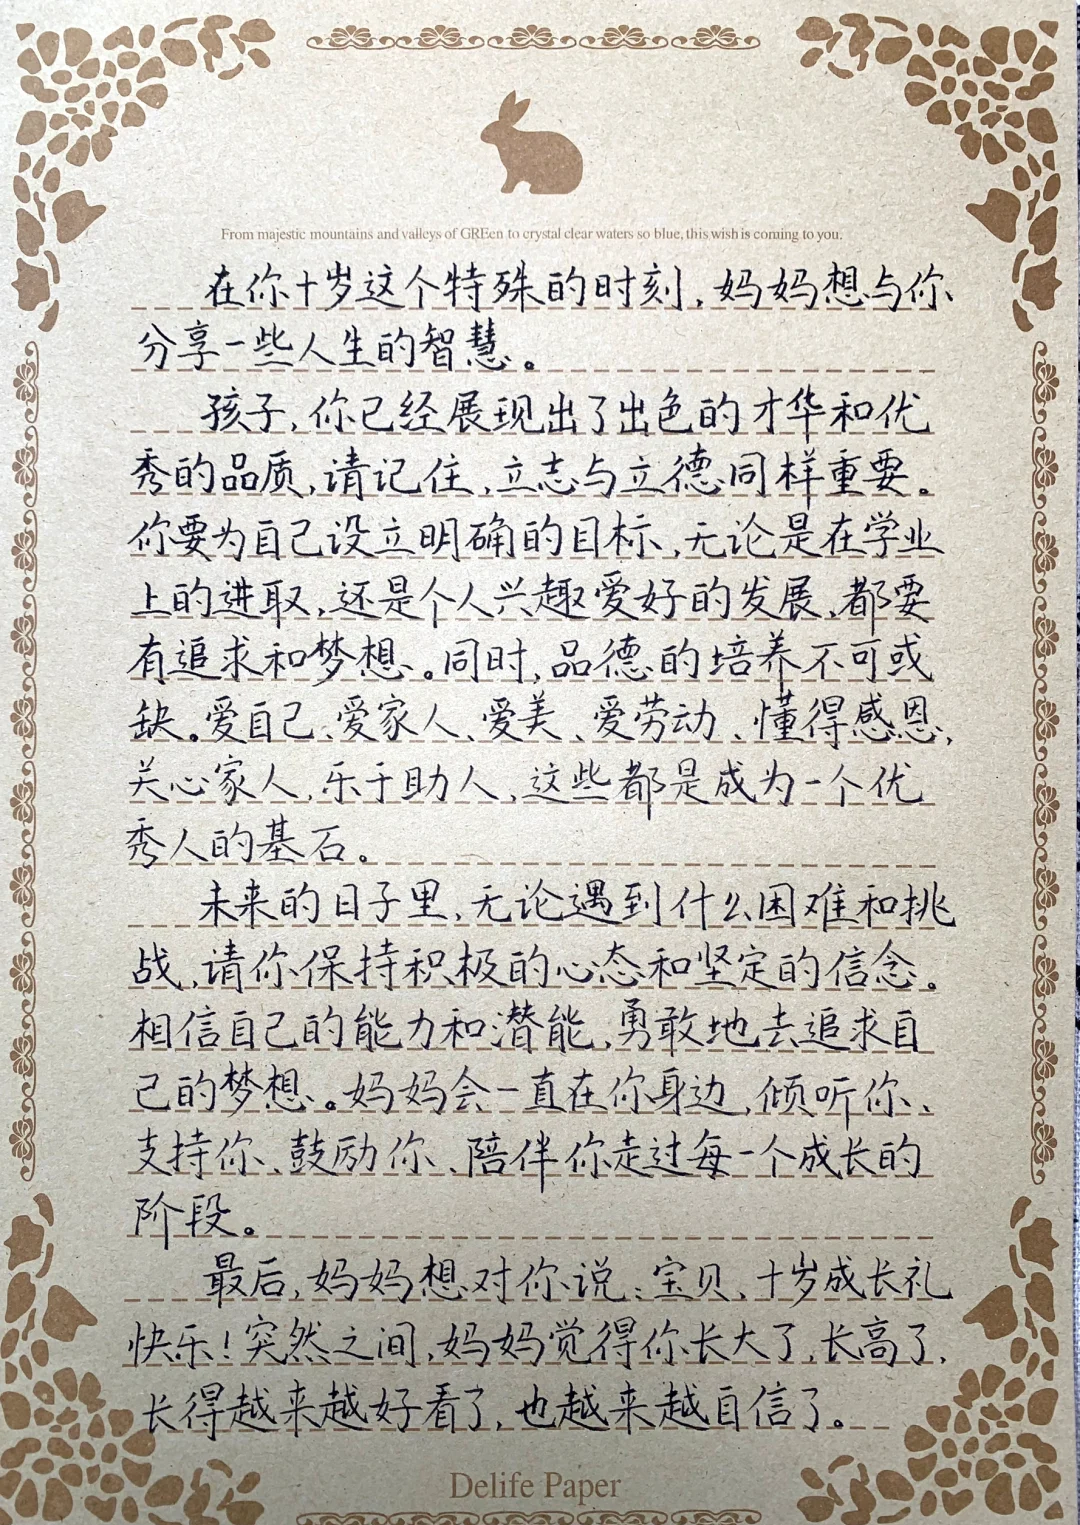 From majestic mountains and valleys of GREen to crystal clear waters so blue, this wish is coming to you.
在你十岁这个特殊的时刻，妈妈想与你
分享一些人生的智慧。
孩子，你已经展现出了出色的才华和优
秀的品质，请记住，立志与立德同样重要。
你要为自己设立明确的目标，无论是在学业
上的进取，还是个人兴趣爱好的发展，都要
有追求和梦想。同时，品德的培养不可或
缺。爱自己、爱家人、爱美、爱劳动、懂得感恩，
关心家人，乐于助人，这些都是成为一个优
秀人的基石。
未来的日子里，无论遇到什么困难和挑
战，请你保持积极的心态和坚定的信念。
相信自己的能力和潜能，勇敢地去追求自
己的梦想。妈妈会一直在你身边，倾听你、
支持你、鼓励你、陪伴你走过每一个成长的
阶段。
最后，妈妈想对你说：宝贝，十岁成长礼
快乐！突然之间，妈妈觉得你长大了，长高了，
长得越来越好看了，也越来越自信了。
Delife Paper